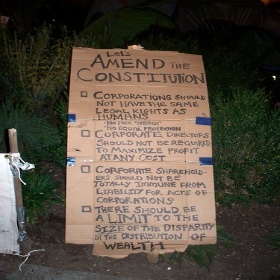 Let's
AMEND THE
CONSTITUTION
CORPORATIONS SHOULD
NOT HAVE THE SAME
LEGAL RIGHTS AS
HUMANS
"NO FREE SPEECH"
NO EQUAL PROTECTION
CORPORATE DIRECTORS
SHOULD NOT BE REQUIRED
TO MAXIMIZE PROFIT
AT ANY COST
CORPORATE SHAREHOLD-
ERS SHOULD NOT BE
TOTALLY IMMUNE FROM
LIABILITY FOR ACTS OF
CORPORATIONS
THERE SHOULD BE
A LIMIT TO THE
SIZE OF THE DISPARITY
IN THE DISTRIBUTION OF
WEALTH